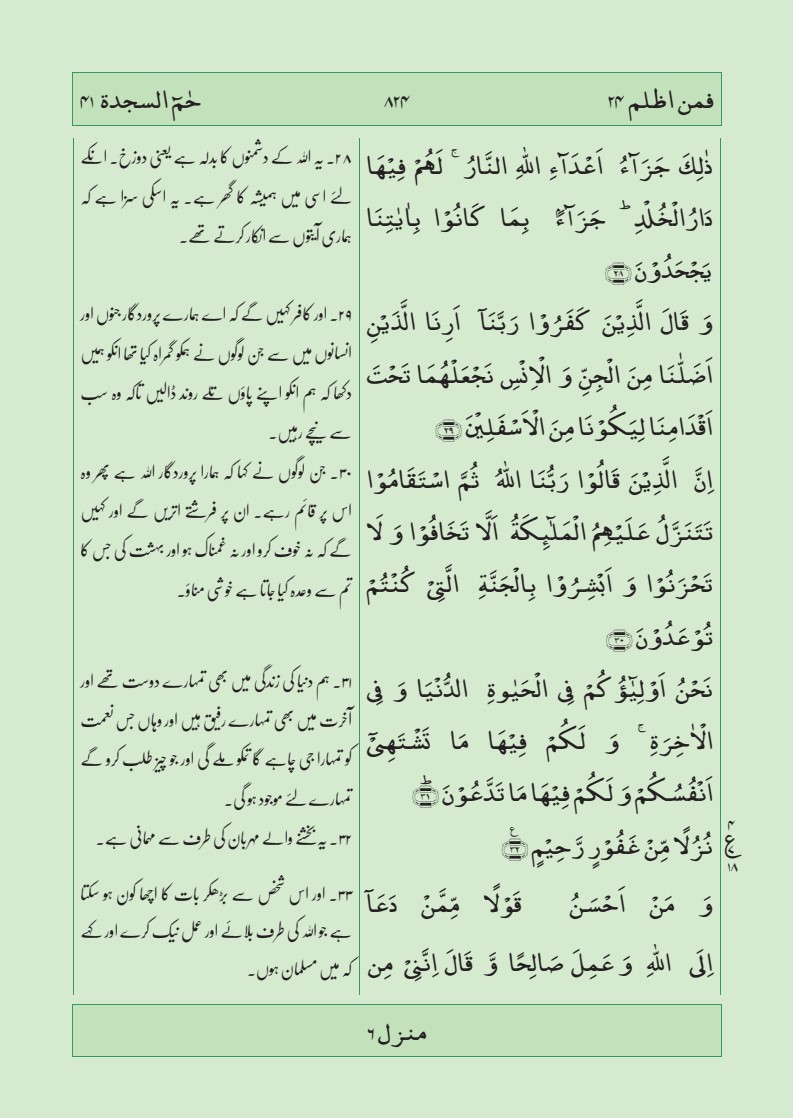 فمن اظلم ۲۴
۸۲۴
حٰمٓ السجدة ۴۱
ذٰلِكَ جَزَآءُ اَعْدَآءِ اللّٰهِ النَّارُ ۚ لَهُمْ فِيْهَا
دَارُ الْخُلْدِ ؕ جَزَآءًۢ بِمَا كَانُوْا بِاٰيٰتِنَا
يَجْحَدُوْنَ ﴿۲۸﴾
وَ قَالَ الَّذِيْنَ كَفَرُوْا رَبَّنَاۤ اَرِنَا الَّذَيْنِ
اَضَلّٰنَا مِنَ الْجِنِّ وَ الْاِنْسِ نَجْعَلْهُمَا تَحْتَ
اَقْدَامِنَا لِيَكُوْنَا مِنَ الْاَسْفَلِيْنَ ﴿۲۹﴾
اِنَّ الَّذِيْنَ قَالُوْا رَبُّنَا اللّٰهُ ثُمَّ اسْتَقَامُوْا
تَتَنَزَّلُ عَلَيْهِمُ الْمَلٰٓئِكَةُ اَلَّا تَخَافُوْا وَ لَا
تَحْزَنُوْا وَ اَبْشِرُوْا بِالْجَنَّةِ الَّتِيْ كُنْتُمْ
تُوْعَدُوْنَ ﴿۳۰﴾
نَحْنُ اَوْلِيٰٓؤُكُمْ فِي الْحَيٰوةِ الدُّنْيَا وَ فِي
الْاٰخِرَةِ ۚ وَ لَكُمْ فِيْهَا مَا تَشْتَهِيْۤ
اَنْفُسُكُمْ وَ لَكُمْ فِيْهَا مَا تَدَّعُوْنَ ﴿۳۱﴾ؕ
نُزُلًا مِّنْ غَفُوْرٍ رَّحِيْمٍ ﴿۳۲﴾ع
۴
ع
۱۸
وَ مَنْ اَحْسَنُ قَوْلًا مِّمَّنْ دَعَاۤ
اِلَى اللّٰهِ وَ عَمِلَ صَالِحًا وَّ قَالَ اِنَّنِيْ مِن
۲۸۔ یہ اللہ کے دشمنوں کا بدلہ ہے یعنی دوزخ۔ انکے
لئے اسی میں ہمیشہ کا گھر ہے۔ یہ اسکی سزا ہے کہ
ہماری آیتوں سے انکار کرتے تھے۔
۲۹۔ اور کافر کہیں گے کہ اے ہمارے پروردگار جنوں اور
انسانوں میں سے جن لوگوں نے ہمکو گمراہ کیا تھا انکو ہمیں
دکھا کہ ہم انکو اپنے پاؤں تلے روند ڈالیں تاکہ وہ سب
سے نیچے رہیں۔
۳۰۔ جن لوگوں نے کہا کہ ہمارا پروردگار اللہ ہے پھر وہ
اس پر قائم رہے۔ ان پر فرشتے اتریں گے اور کہیں
گے کہ نہ خوف کرو اور نہ غمناک ہو اور بہشت کی جس کا
تم سے وعدہ کیا جاتا ہے خوشی مناؤ۔
۳۱۔ ہم دنیا کی زندگی میں بھی تمہارے دوست تھے اور
آخرت میں بھی تمہارے رفیق ہیں اور وہاں جس نعمت
کو تمہارا جی چاہے گا تمکو ملے گی اور جو چیز طلب کرو گے
تمہارے لئے موجود ہو گی۔
۳۲۔ یہ بخشنے والے مہربان کی طرف سے مہمانی ہے۔
۳۳۔ اور اس شخص سے بڑھکر بات کا اچھا کون ہو سکتا
ہے جو اللہ کی طرف بلائے اور عمل نیک کرے اور کہے
کہ میں مسلمان ہوں۔
منزل ۶